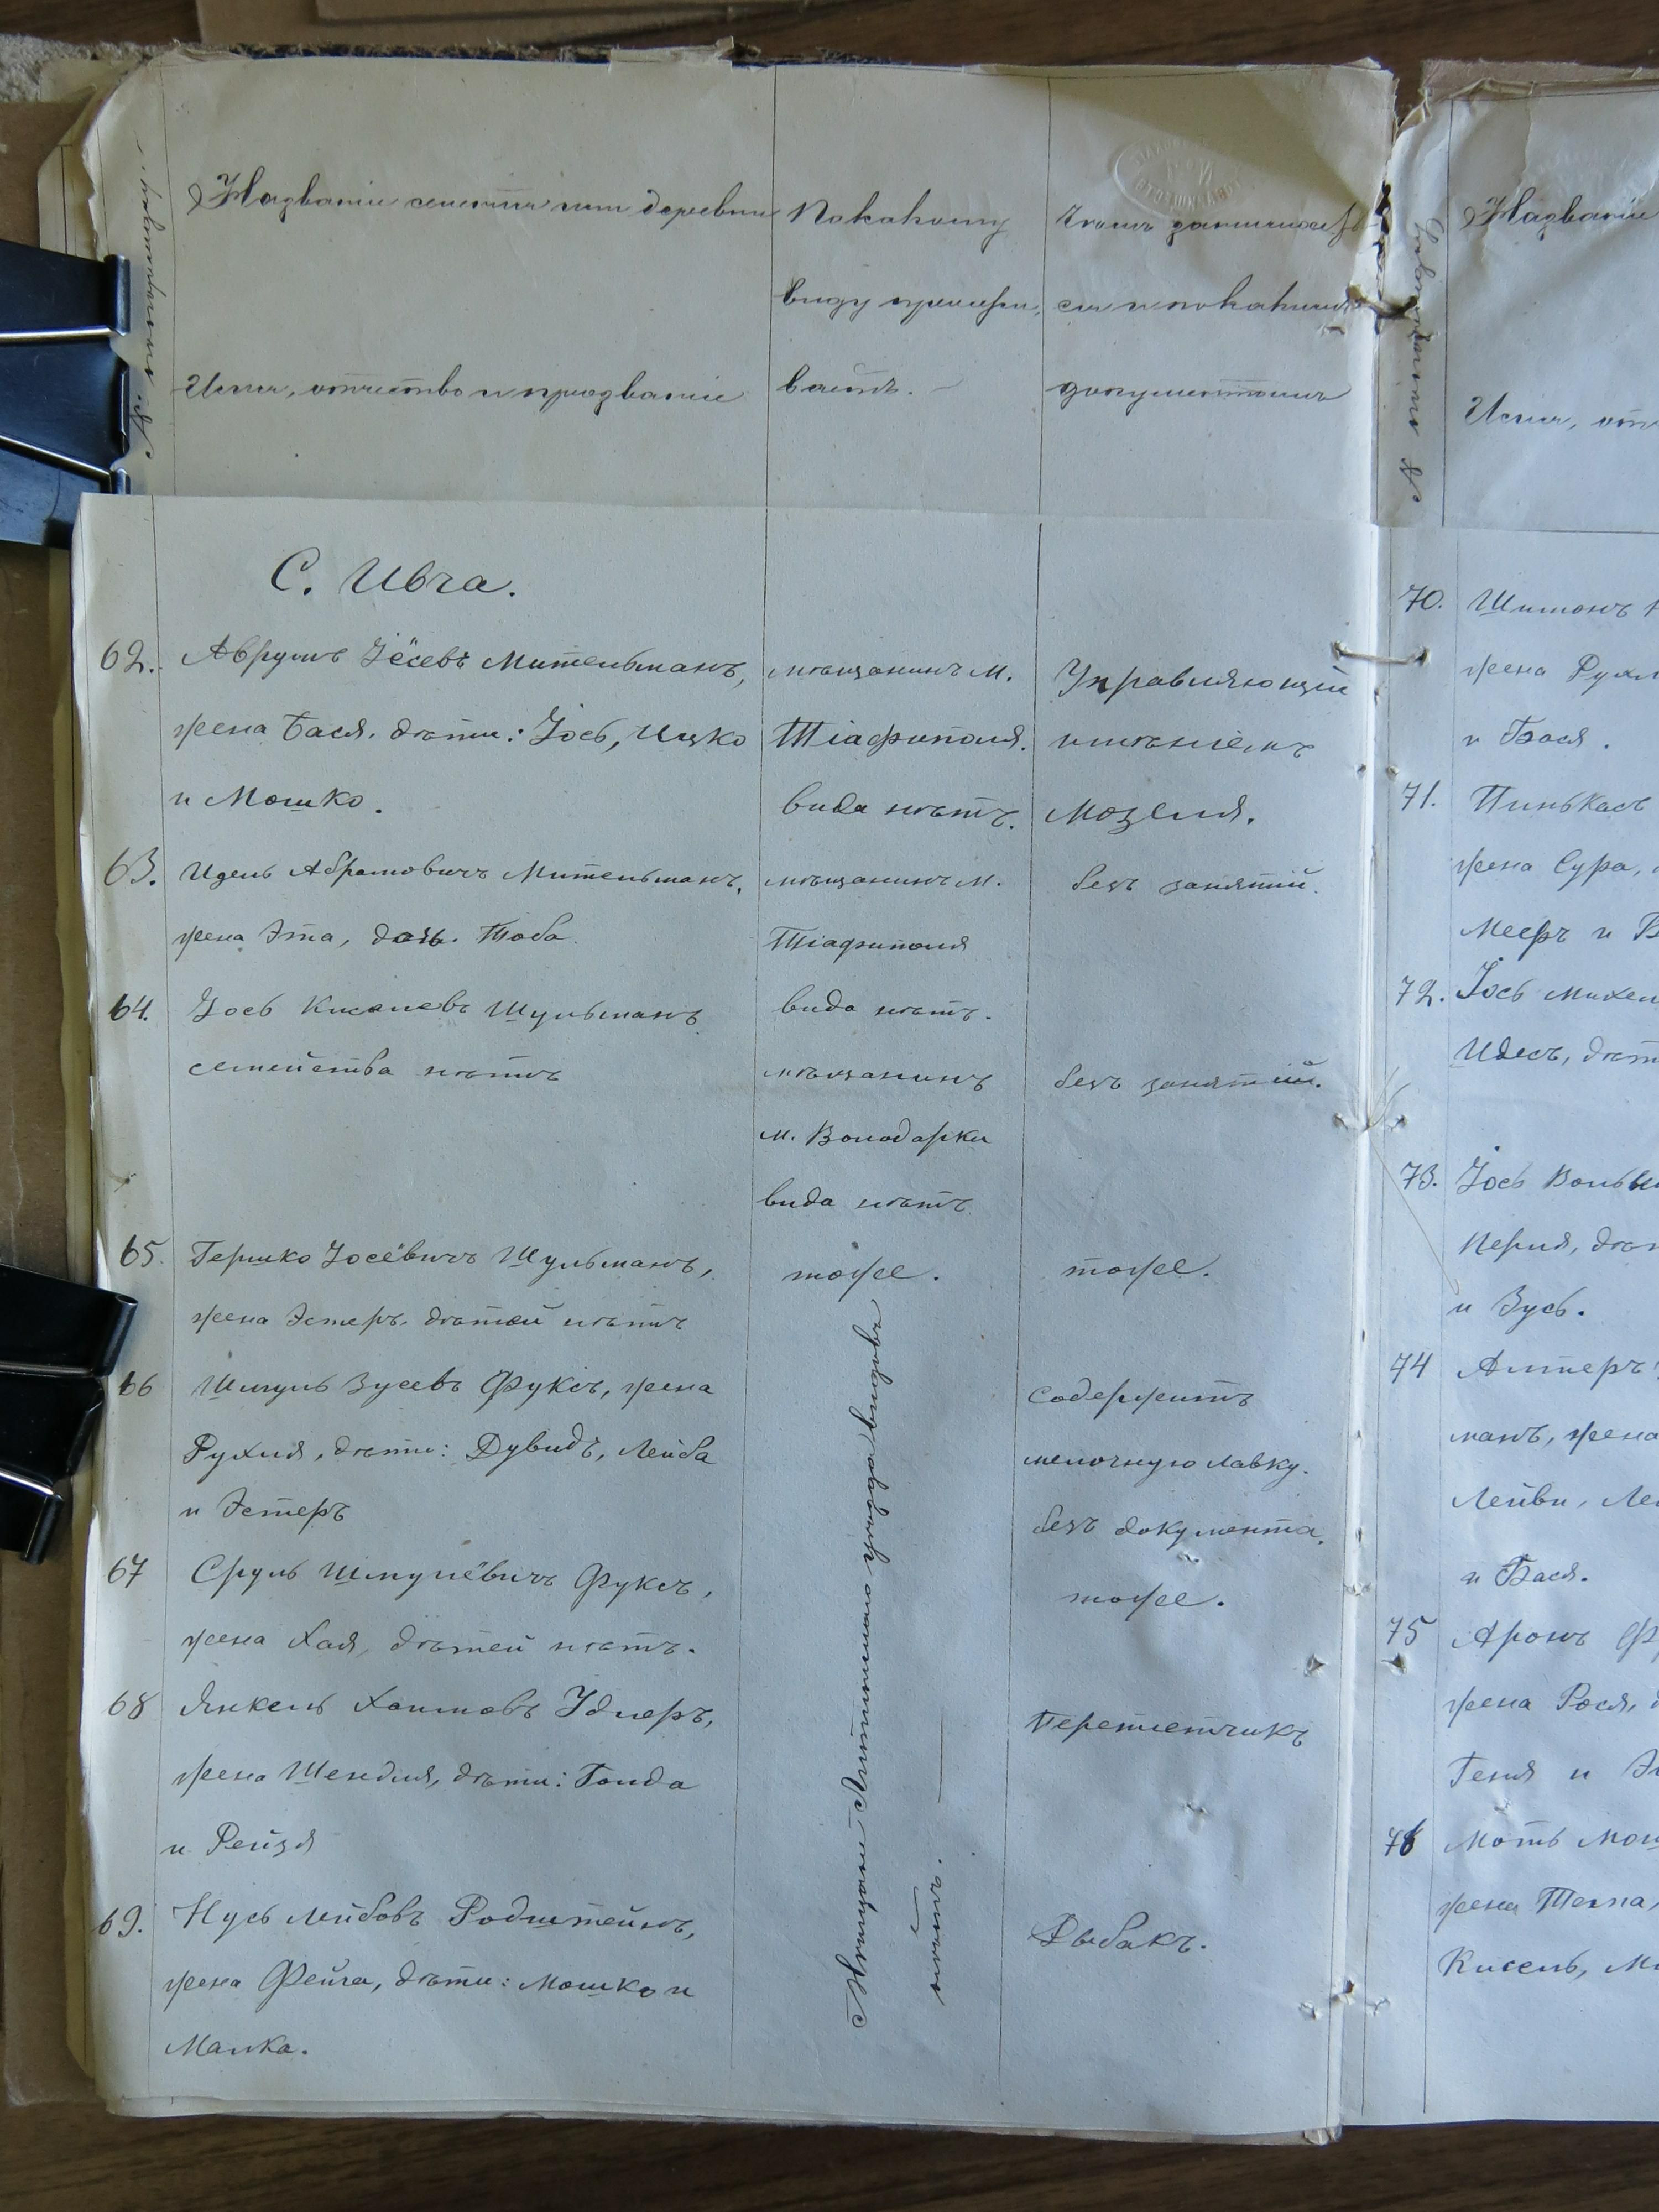 Названіе селенія или деревни
Имя, отчество и прозваніе
По какому
виду прожи-
ваетъ.
Чѣмъ занимает-
ся и по какимъ
документамъ
С. Ивча.
62. Аврумъ Іосевъ Мительманъ,
жена Бася. дѣти: Іось, Ицко
и Мошко.
мѣщанинъ м.
Тіафиполя.
вида нѣтъ.
Управляющій
имѣніемъ
Мозеля.
63. Идель Абрамовичъ Мительманъ,
жена Эта, дочь. Тоба
мѣщанинъ м.
Тіафиполя
вида нѣтъ.
безъ занятій.
64. Іось Киселевъ Шульманъ
семейства нѣтъ
мѣщанинъ
м. Володарки
вида нѣтъ
безъ занятій.
65. Гершко Іосёвичъ Шульманъ,
жена Эстеръ. дѣтей нѣтъ
тоже.
тоже.
66 Шмуль Зусевъ Фуксъ, жена
Рухля, дѣти: Дувидъ, Лейба
и Эстеръ
содержитъ
мелочную лавку.
безъ документа.
67 Сруль Шмулёвичъ Фуксъ,
жена Хая, дѣтей нѣтъ.
тоже.
68 Янкель Хаимовъ Удлеръ,
жена Шендля, дѣти: Голда
и Рейзя
Переплетчикъ
69. Нусь Лейбовъ Родштейнъ,
жена Фейга, дѣти: Мошко и
Малка.
Рыбакъ.
Мѣщане Литинскаго уѣзда, видовъ
нѣтъ.
Названіе
Имя, отч
70. Шимонъ
жена Рухл
и Бася.
71. Пинькасъ
жена Сура,
Мееръ и
72. Іось Михел
Идесъ, дѣт
73. Іось Вольв
Перля, дѣт
и Зусь.
74 Алтеръ
манъ, жена
Лейви, Ле
и Бася.
75 Аронъ
жена Рося,
Геня и
76 Моть Мош
жена Тема,
Кисель, М